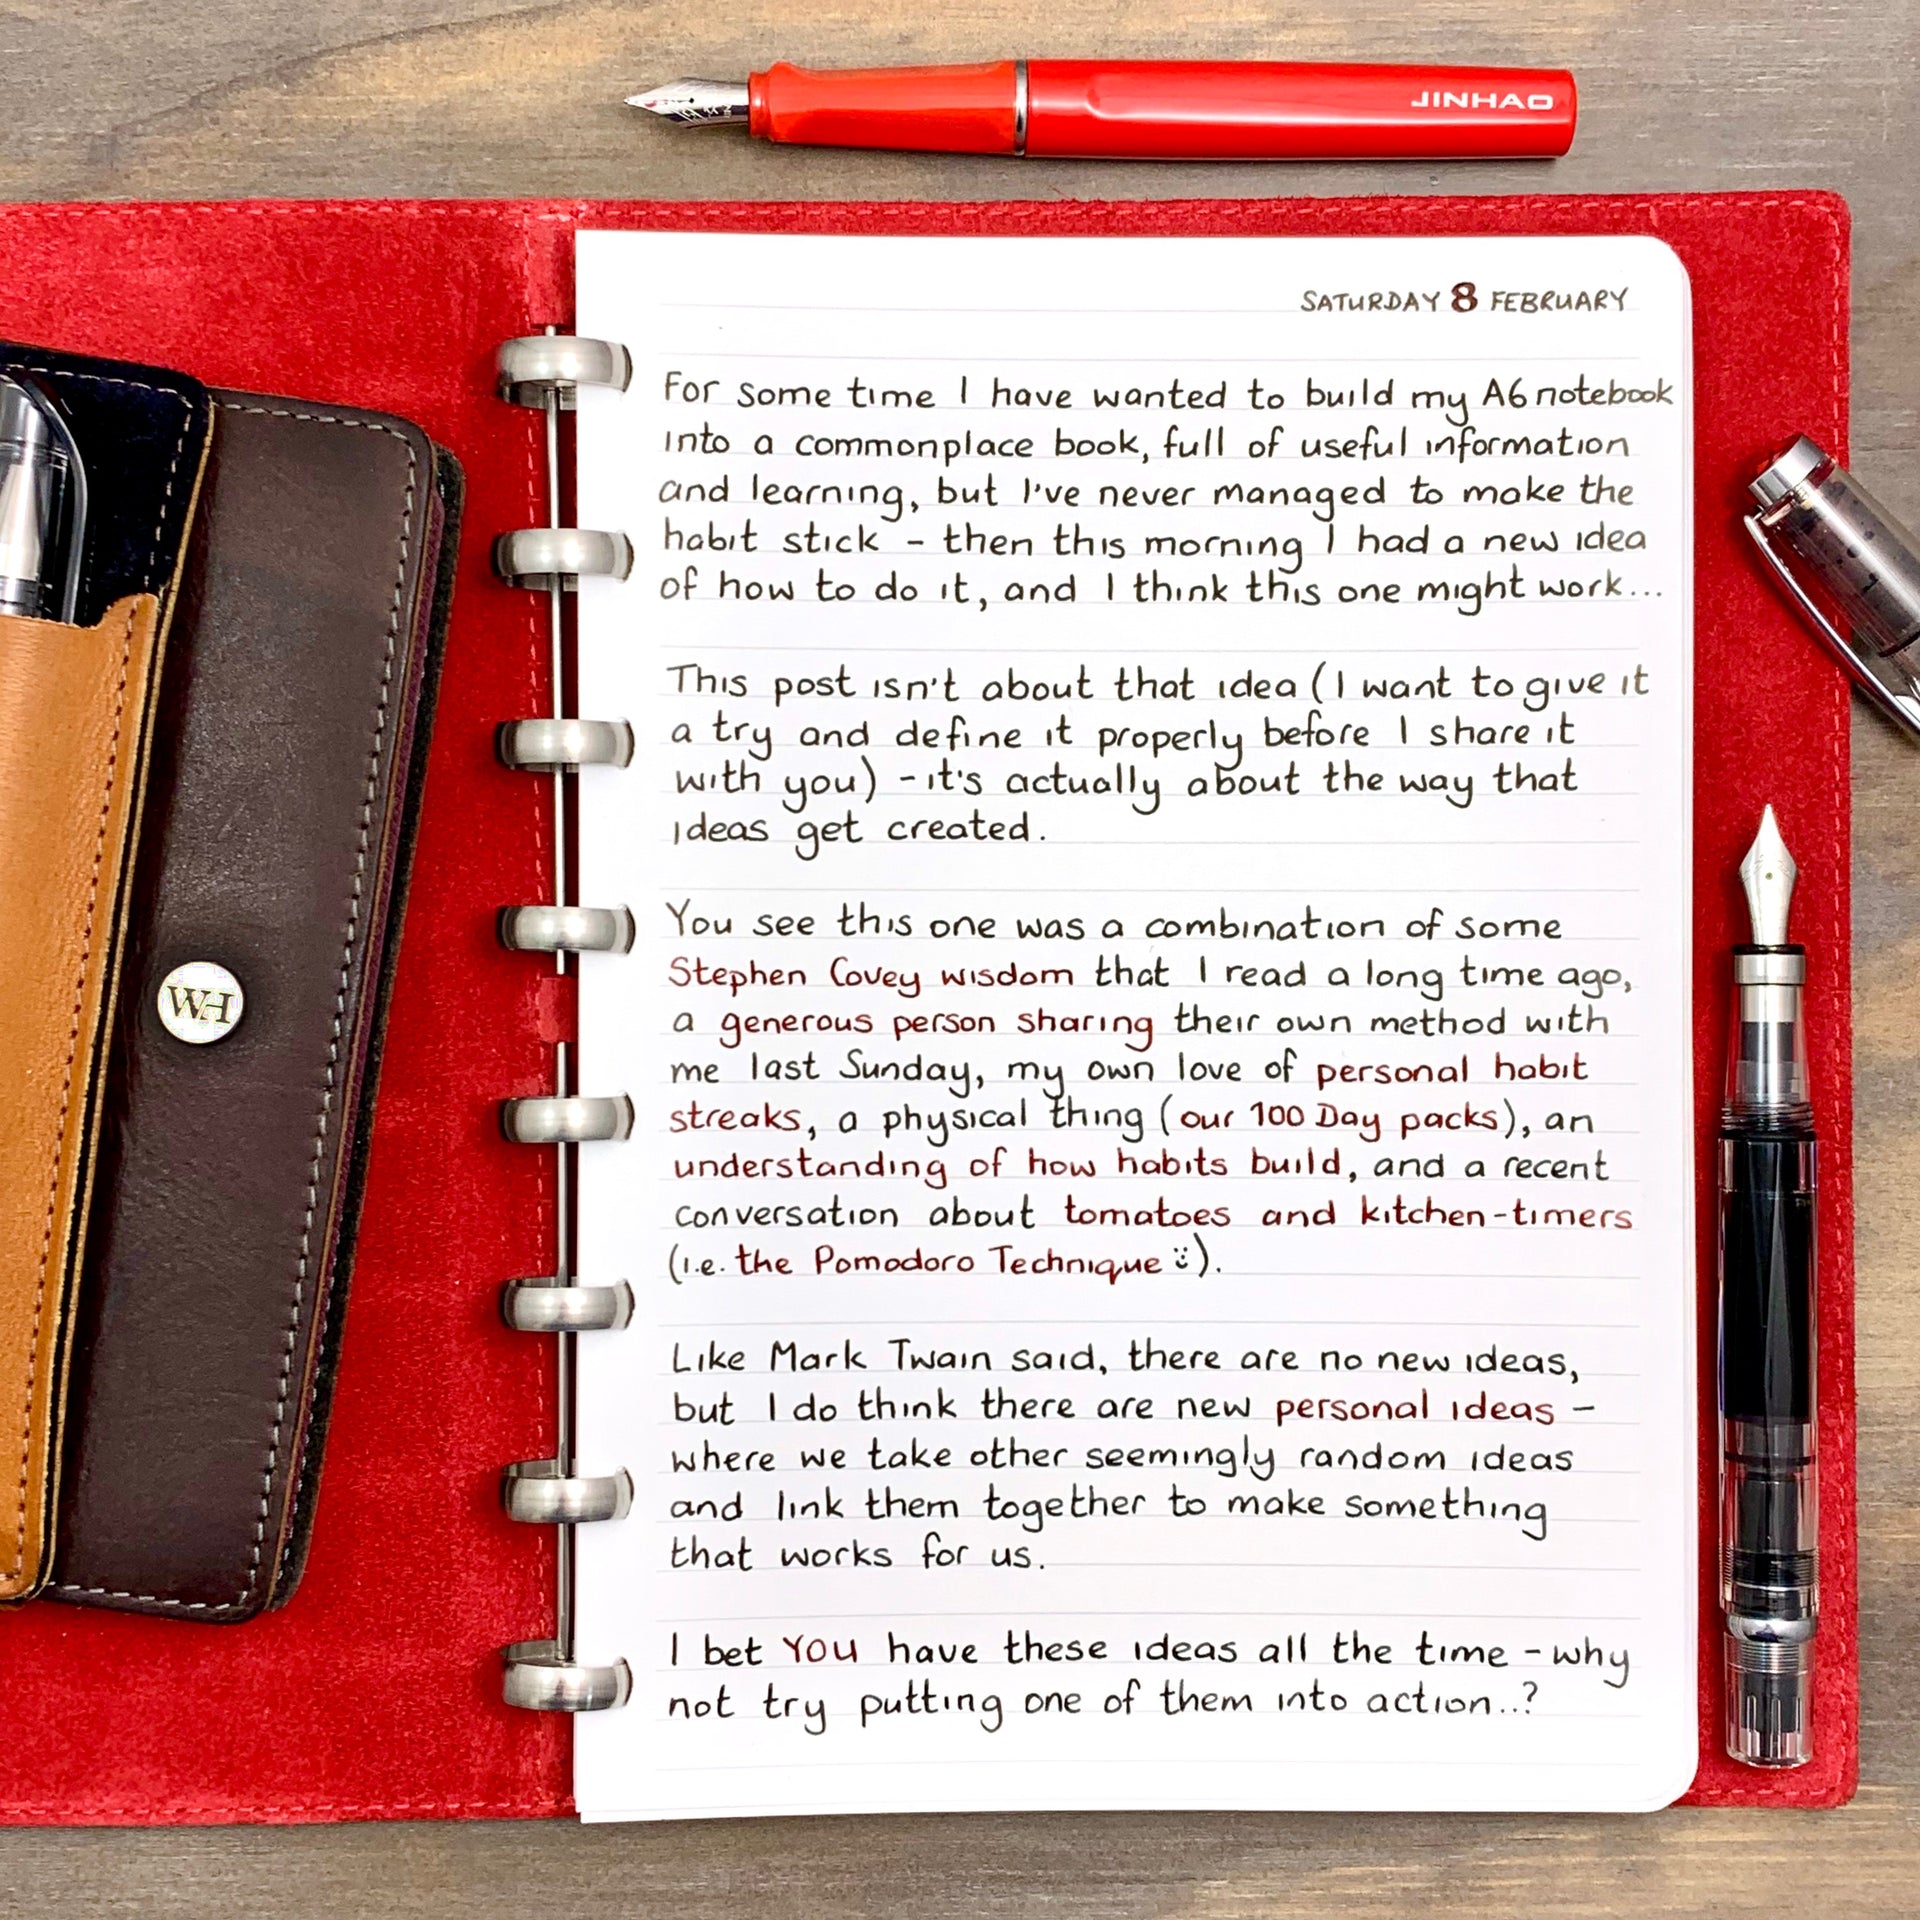 JINHAO
SATURDAY 8 FEBRUARY
For some time I have wanted to build my A6 notebook
into a commonplace book, full of useful information
and learning, but I've never managed to make the
habit stick - then this morning I had a new idea
of how to do it, and I think this one might work...
This post isn't about that idea (I want to give it
a try and define it properly before I share it
with you) - it's actually about the way that
ideas get created.
You see this one was a combination of some
Stephen Covey wisdom that I read a long time ago,
a generous person sharing their own method with
me last Sunday, my own love of personal habit
streaks, a physical thing (our 100 Day packs), an
understanding of how habits build, and a recent
conversation about tomatoes and kitchen-timers
(i.e. the Pomodoro Technique ü).
Like Mark Twain said, there are no new ideas,
but I do think there are new personal ideas -
where we take other seemingly random ideas
and link them together to make something
that works for us.
I bet YOU have these ideas all the time - why
not try putting one of them into action..?
WH